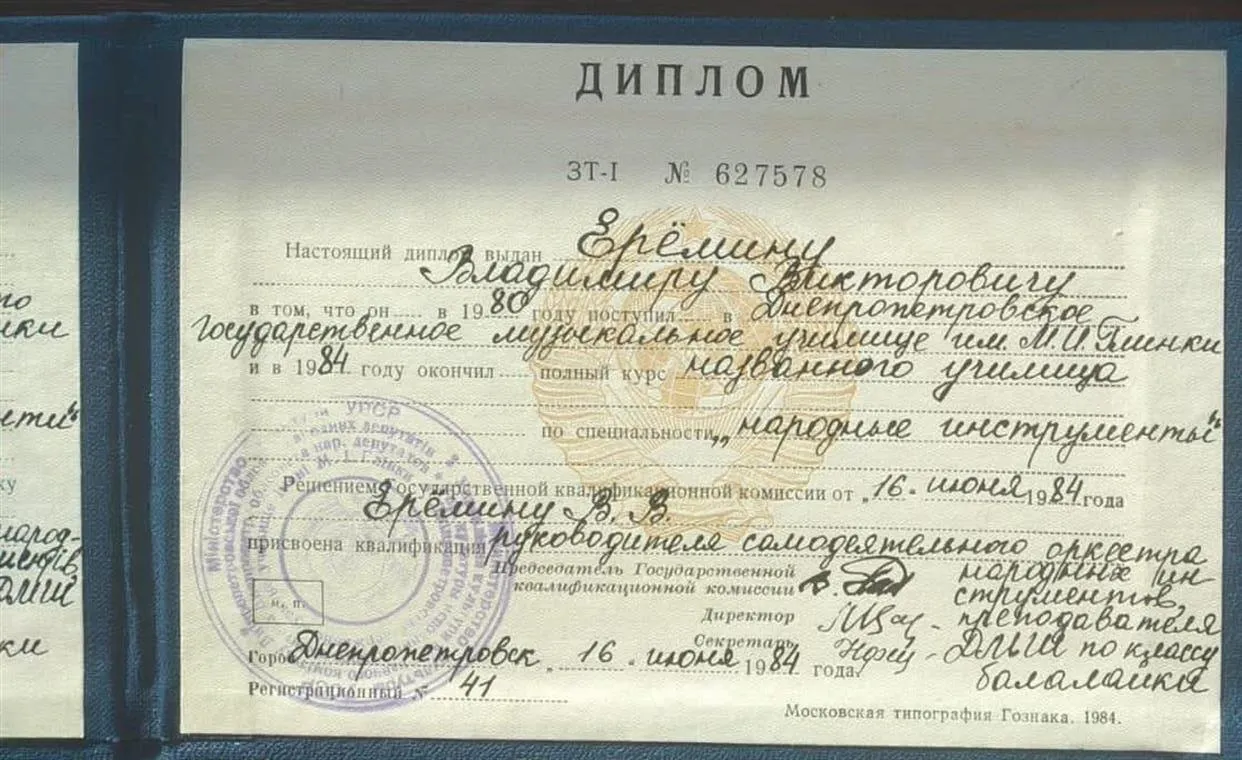 ДИПЛОМ
ЗТ-I № 627578
Настоящий диплом выдан Ерёмину
Владимиру Викторовичу
в том, что он в 1980 году поступил в Днепропетровское
государственное музыкальное училище им. М.И. Глинки
и в 1984 году окончил полный курс названного училища
по специальности „народные инструменты“
Решением Государственной квалификационной комиссии от „16. июня 1984 года
Ерёмину В. В.
присвоена квалификация руководителя самодеятельного оркестра
народных ин-
струментов,
преподавателя
ДМШ по классу
балалайки
Председатель Государственной
квалификационной комиссии
Директор
Секретарь
м. п.
Город Днепропетровск „ 16 . июня 1984 года.
Регистрационный № 41
Московская типография Гознака. 1984.
то
нки
нти“
ку
народ-
ментів,
ДМШ
ки
УРСР
Міністерство